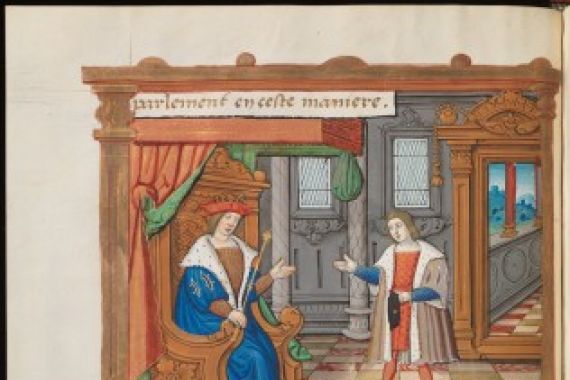 parlement en ceste maniere.